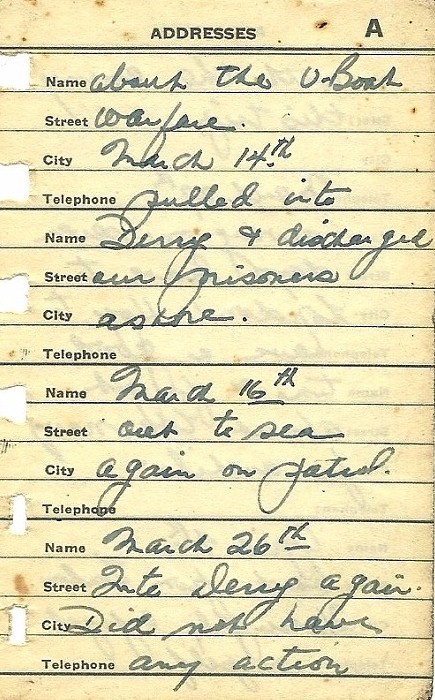 ADDRESSES A
Name about the U-Boat
Street warfare.
City March 14th
Telephone pulled into
Name Derry & discharged
Street our prisoners
City ashore.
Telephone
Name March 16th
Street out to sea
City again on patrol.
Telephone
Name March 26th
Street Into Derry again.
City Did not have
Telephone any action